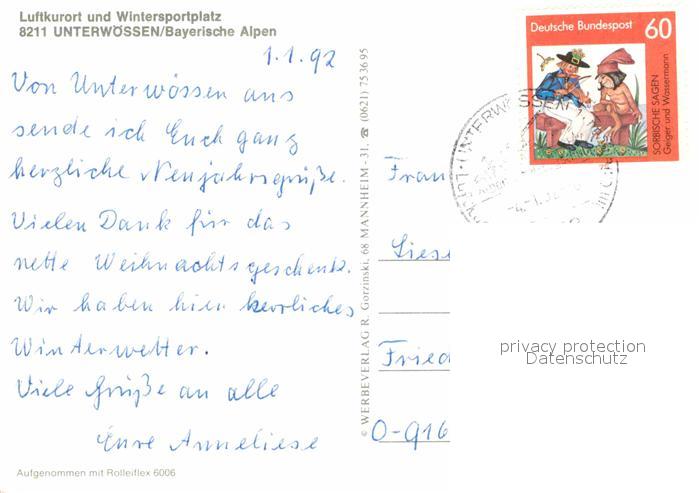 Luftkurort und Wintersportplatz
8211 UNTERWÖSSEN/Bayerische Alpen
1.1.92
Von Unterwössen aus
sende ich Euch ganz
herzliche Neujahrsgrüße.
Vielen Dank für das
nette Weihnachtsgeschenk.
Wir haben hier herrliches
Winterwetter.
Viele Grüße an alle
Eure Anneliese
Aufgenommen mit Rolleiflex 6006
© WERBEVERLAG R. Gorzinski, 68 MANNHEIM - 31, ☎ (0621) 75 36 95
Deutsche Bundespost 60
SORBISCHE SAGEN
Geiger und Wassermann
UNTERWÖSSEN
Frau
Liese
Fried
O-916
privacy protection
Datenschutz